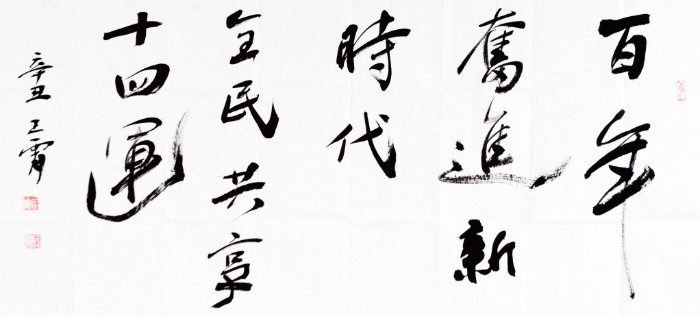 百年
奮進新
時代
全民共享
十四運
辛丑 王霄